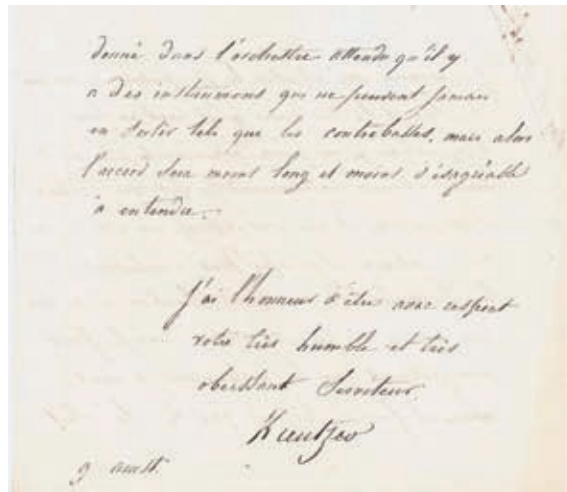 donné dans l'orchestre attendu qu'il y
a des instrumens qui ne peuvent jamais
en sortir tels que les contrebasses, mais alors
l'accord sera moins long et moins désagréable
à entendre.
J'ai l'honneur d'être avec respect
votre très humble et très
obeissant Serviteur.
Kreutzer
9 aoust.